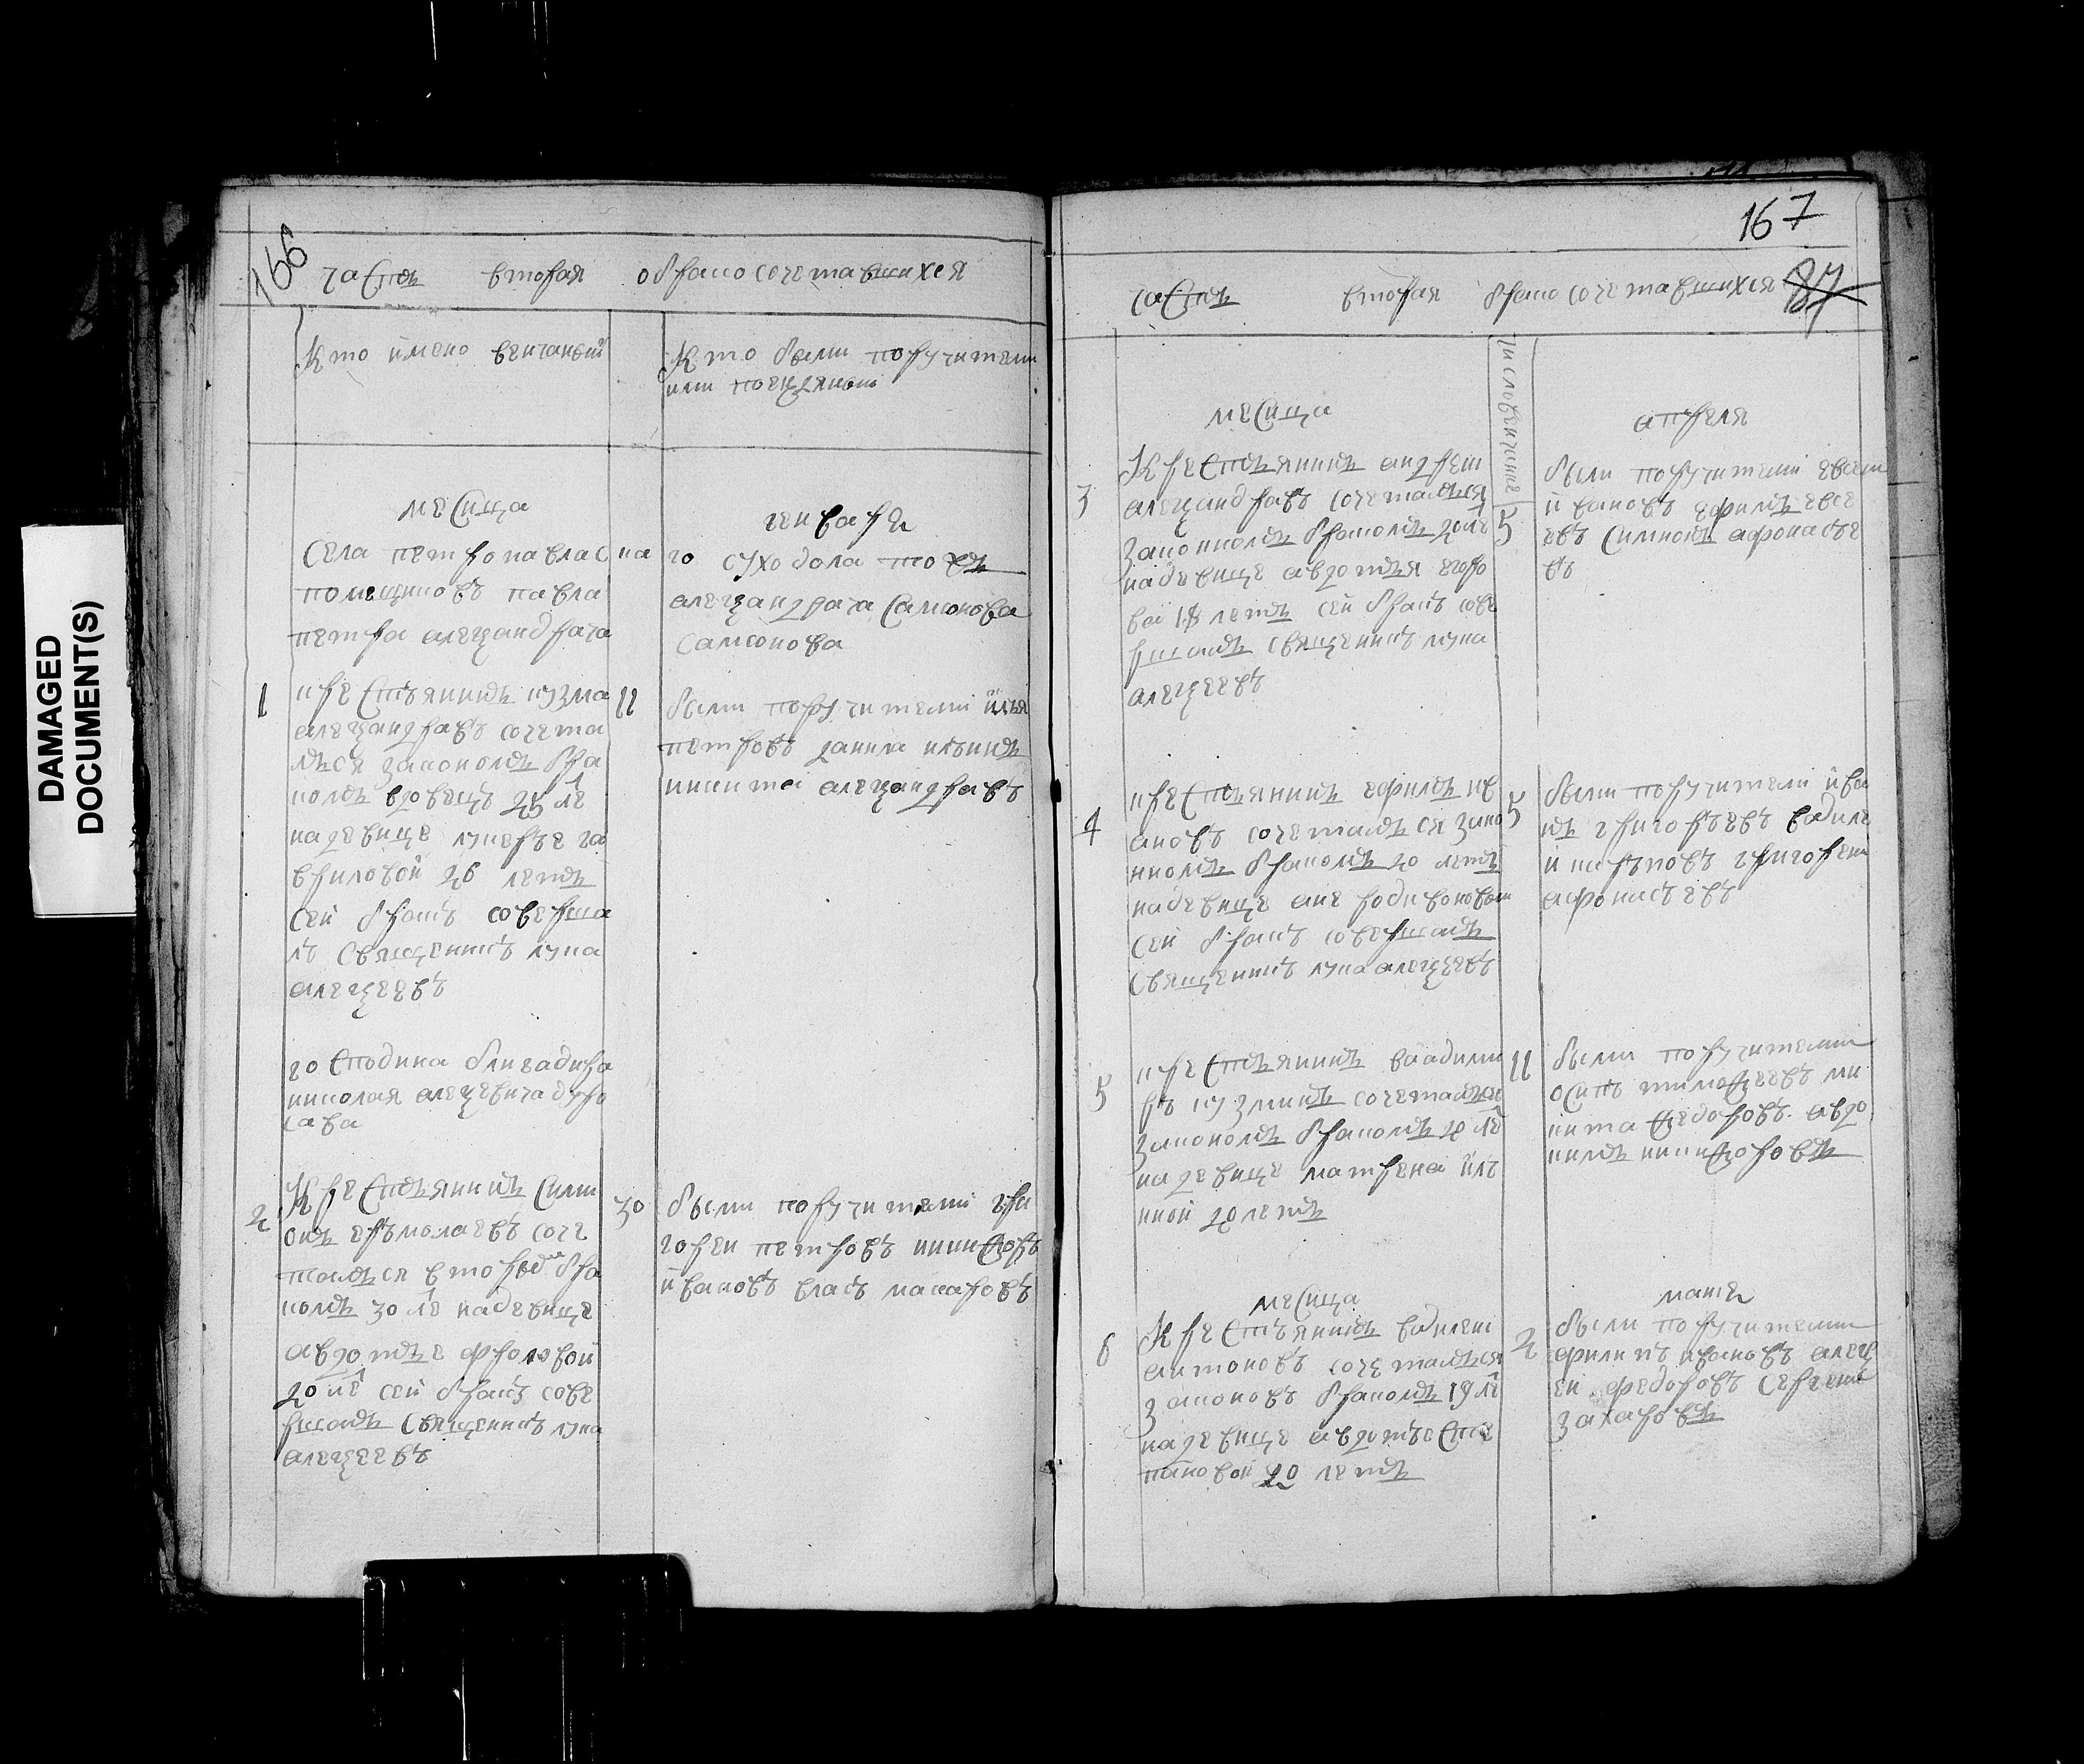 DAMAGED
DOCUMENT(S)
166
часть вторая о бракосочетавшихся
Кто имено венчаный
Кто были поручители
или поезжаныи
месица генваря
села петропавласкаго суходола тожъ
помещиковъ павла
петра алеѯандрача
алеѯандрача Самсонова
Самсонова
1
крестьянинъ кузма
алеѯандравъ сочета
лъся законолъ бра
колъ вдовецъ 25 ле
на девице лукерье га
вриловой 26 летъ
сей бракъ соверша
лъ священникъ лука
алеѯеевъ
11
были поручители илья
петровъ данила ильинъ
никита алеѯандравъ
господина бригадира
николая алеѯевича дуро
сава
2
Крестьянинъ Сими
онъ ермолаевъ соче
тался вторы бра
комъ 30 ле на девице
авдотье фроловой
20 ле сей бракъ сове
ршалъ священникъ лука
алеѯеевъ
30
были поручители гри
горей петровъ никифоръ
ивановъ власъ макаровъ
167
87
часть вторая бракосочетавшихся
число венчание
месица апреля
3
Крестьянинъ андрей
алеѯандравъ сочетался
законнымъ бракомъ 20 ле
на девице авдотья егоро
ва 18 летъ сей бракъ сове
ршалъ священникъ лука
алеѯеевъ
5
были поручители
ивановъ ефимъ евсе
евъ Симионъ афонасье
въ
4
крестьянинъ ефимъ ив
ановъ сочетался зако
ннымъ бракомъ 20 летъ
на девице ане родивоновой
сей бракъ совершалъ
священникъ лука алеѯеевъ
5
были поручители ива
нъ григорьевъ василе
й карповъ григорей
афонасьевъ
5
крестьянинъ владими
ръ кузминъ сочетался
закономъ бракомъ 20 ле
на девице матрена иль
иной 20 летъ
11
были поручители
осипъ тимофеевъ ни
кита федоровъ авдо
кимъ никифоровъ
месица маия
6
Крестьянинъ василей
антоновъ сочетался
законовъ бракомъ 19 ле
на девице авдотье сте
пановой 20 летъ
2
были поручители
филипъ ивановъ алеѯ
ей федоровъ сергей
захаровъ